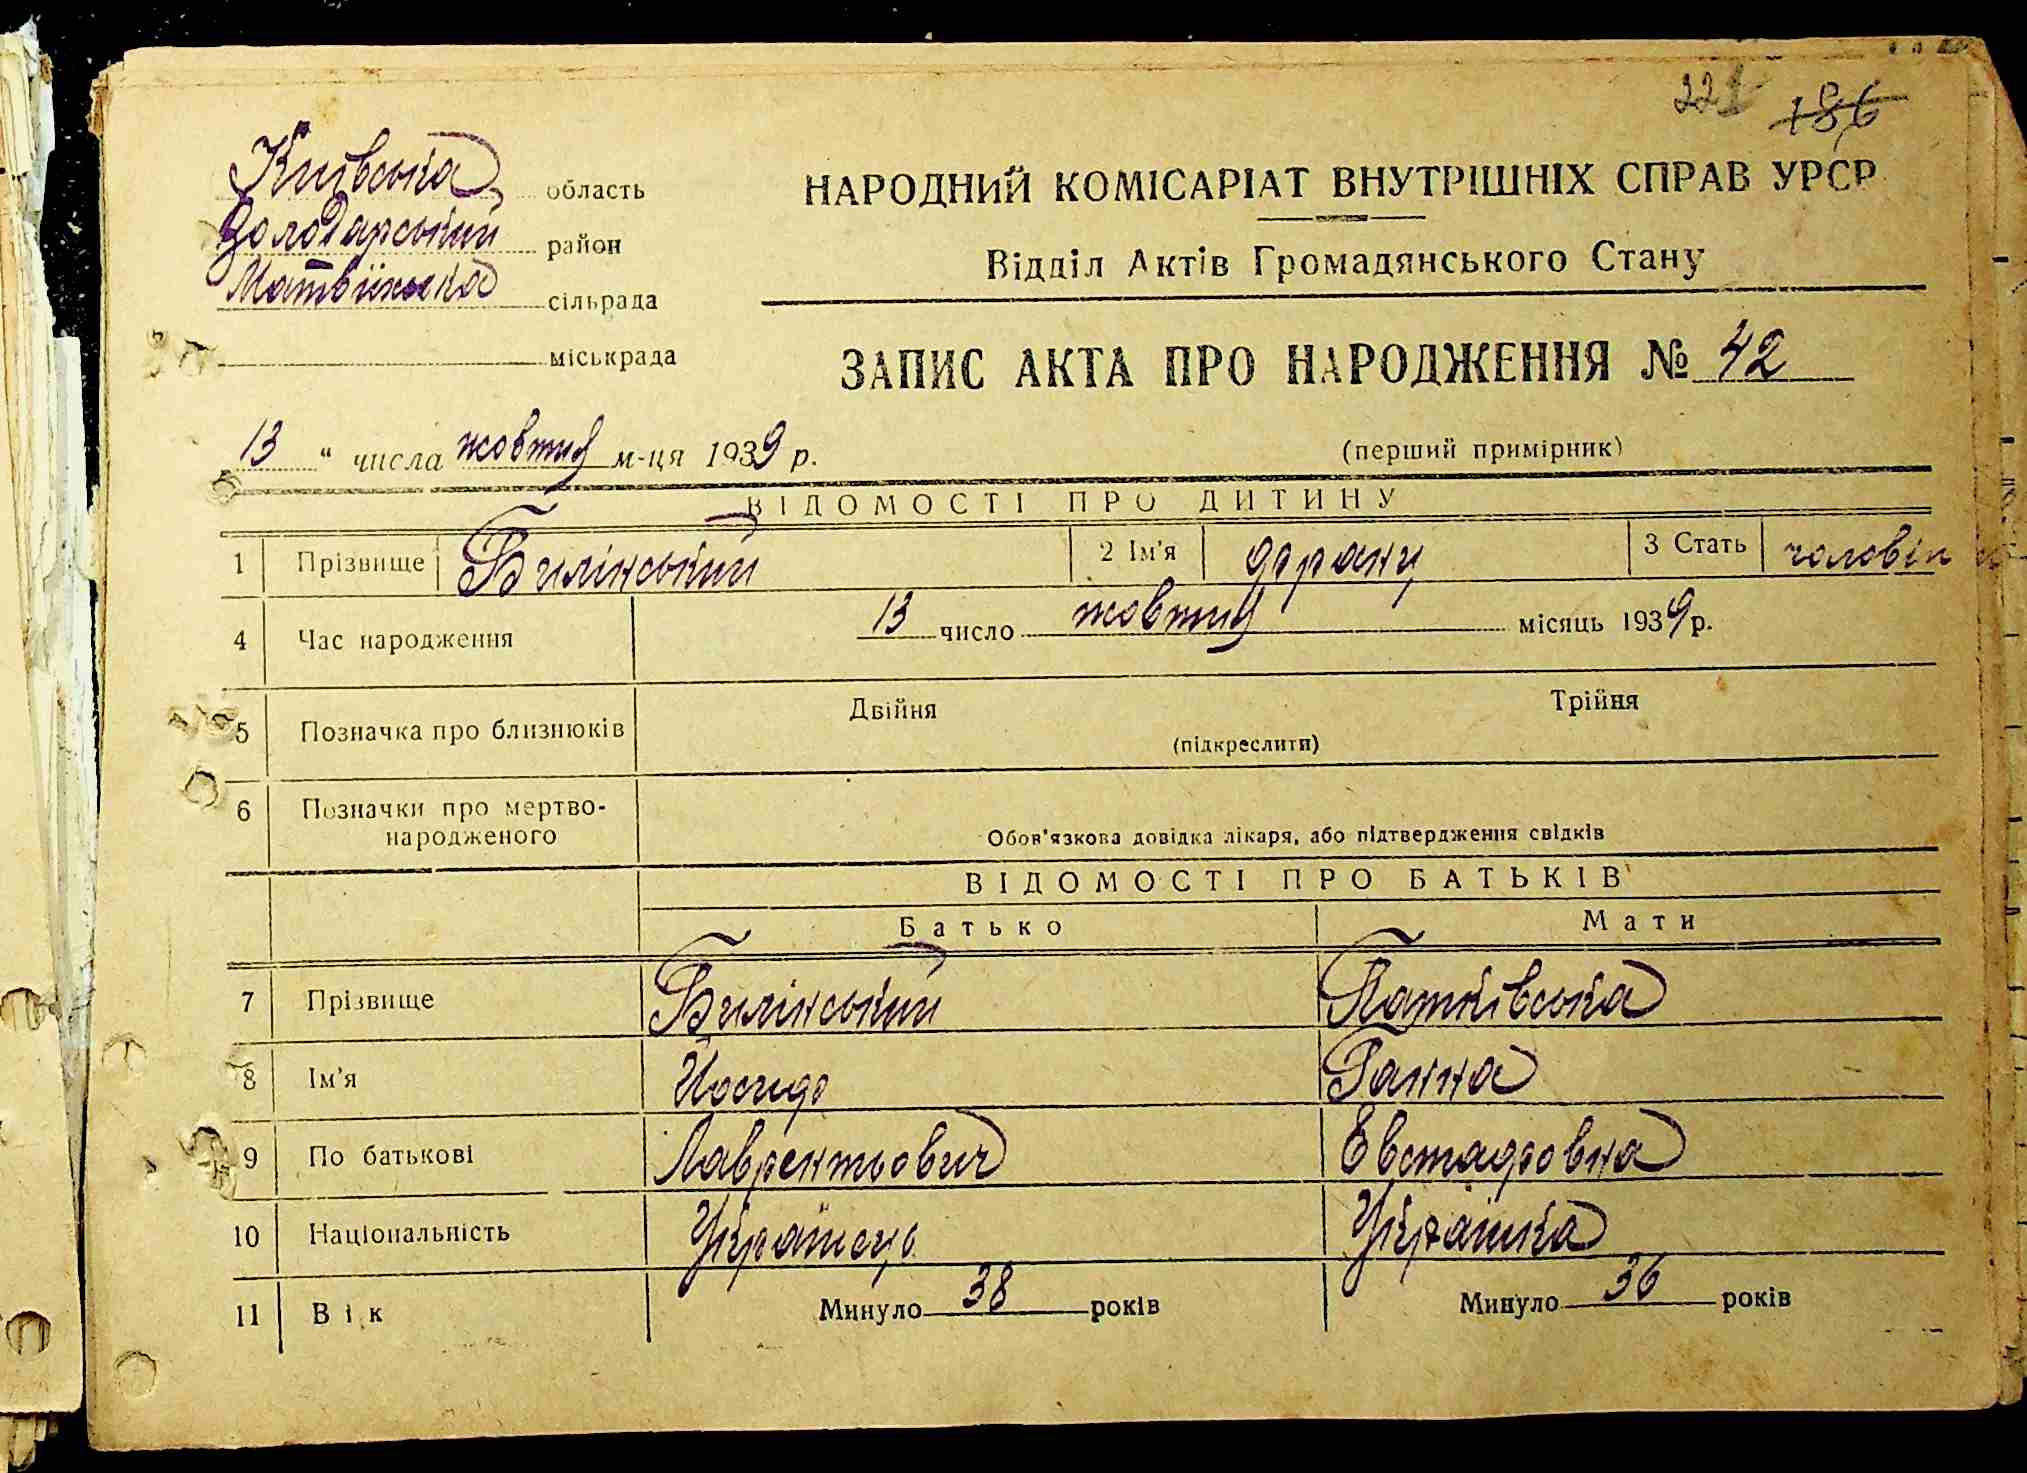 221 186
Київська область
Володарський район
Матвіїнська сільрада
міськрада
НАРОДНИЙ КОМІСАРІАТ ВНУТРІШНІХ СПРАВ УРСР
Відділ Актів Громадянського Стану
ЗАПИС АКТА ПРО НАРОДЖЕННЯ № 42
13 " числа жовтня м-ця 1939 р.
(перший примірник)
ВІДОМОСТІ ПРО ДИТИНУ
1 Прізвище Билінський 2 Ім'я Франц 3 Стать чоловіч
4 Час народження 13 число жовтня місяць 1939 р.
5 Позначка про близнюків Двійня Трійня
(підкреслити)
6 Позначки про мертво-
народженого
Обов'язкова довідка лікаря, або підтвердження свідків
ВІДОМОСТІ ПРО БАТЬКІВ
Батько Мати
7 Прізвище Билінський Патківська
8 Ім'я Йосиф Ганна
9 По батькові Лаврентьович Евстафовна
10 Національність Українець Українка
11 Вік Минуло 38 років Минуло 36 років